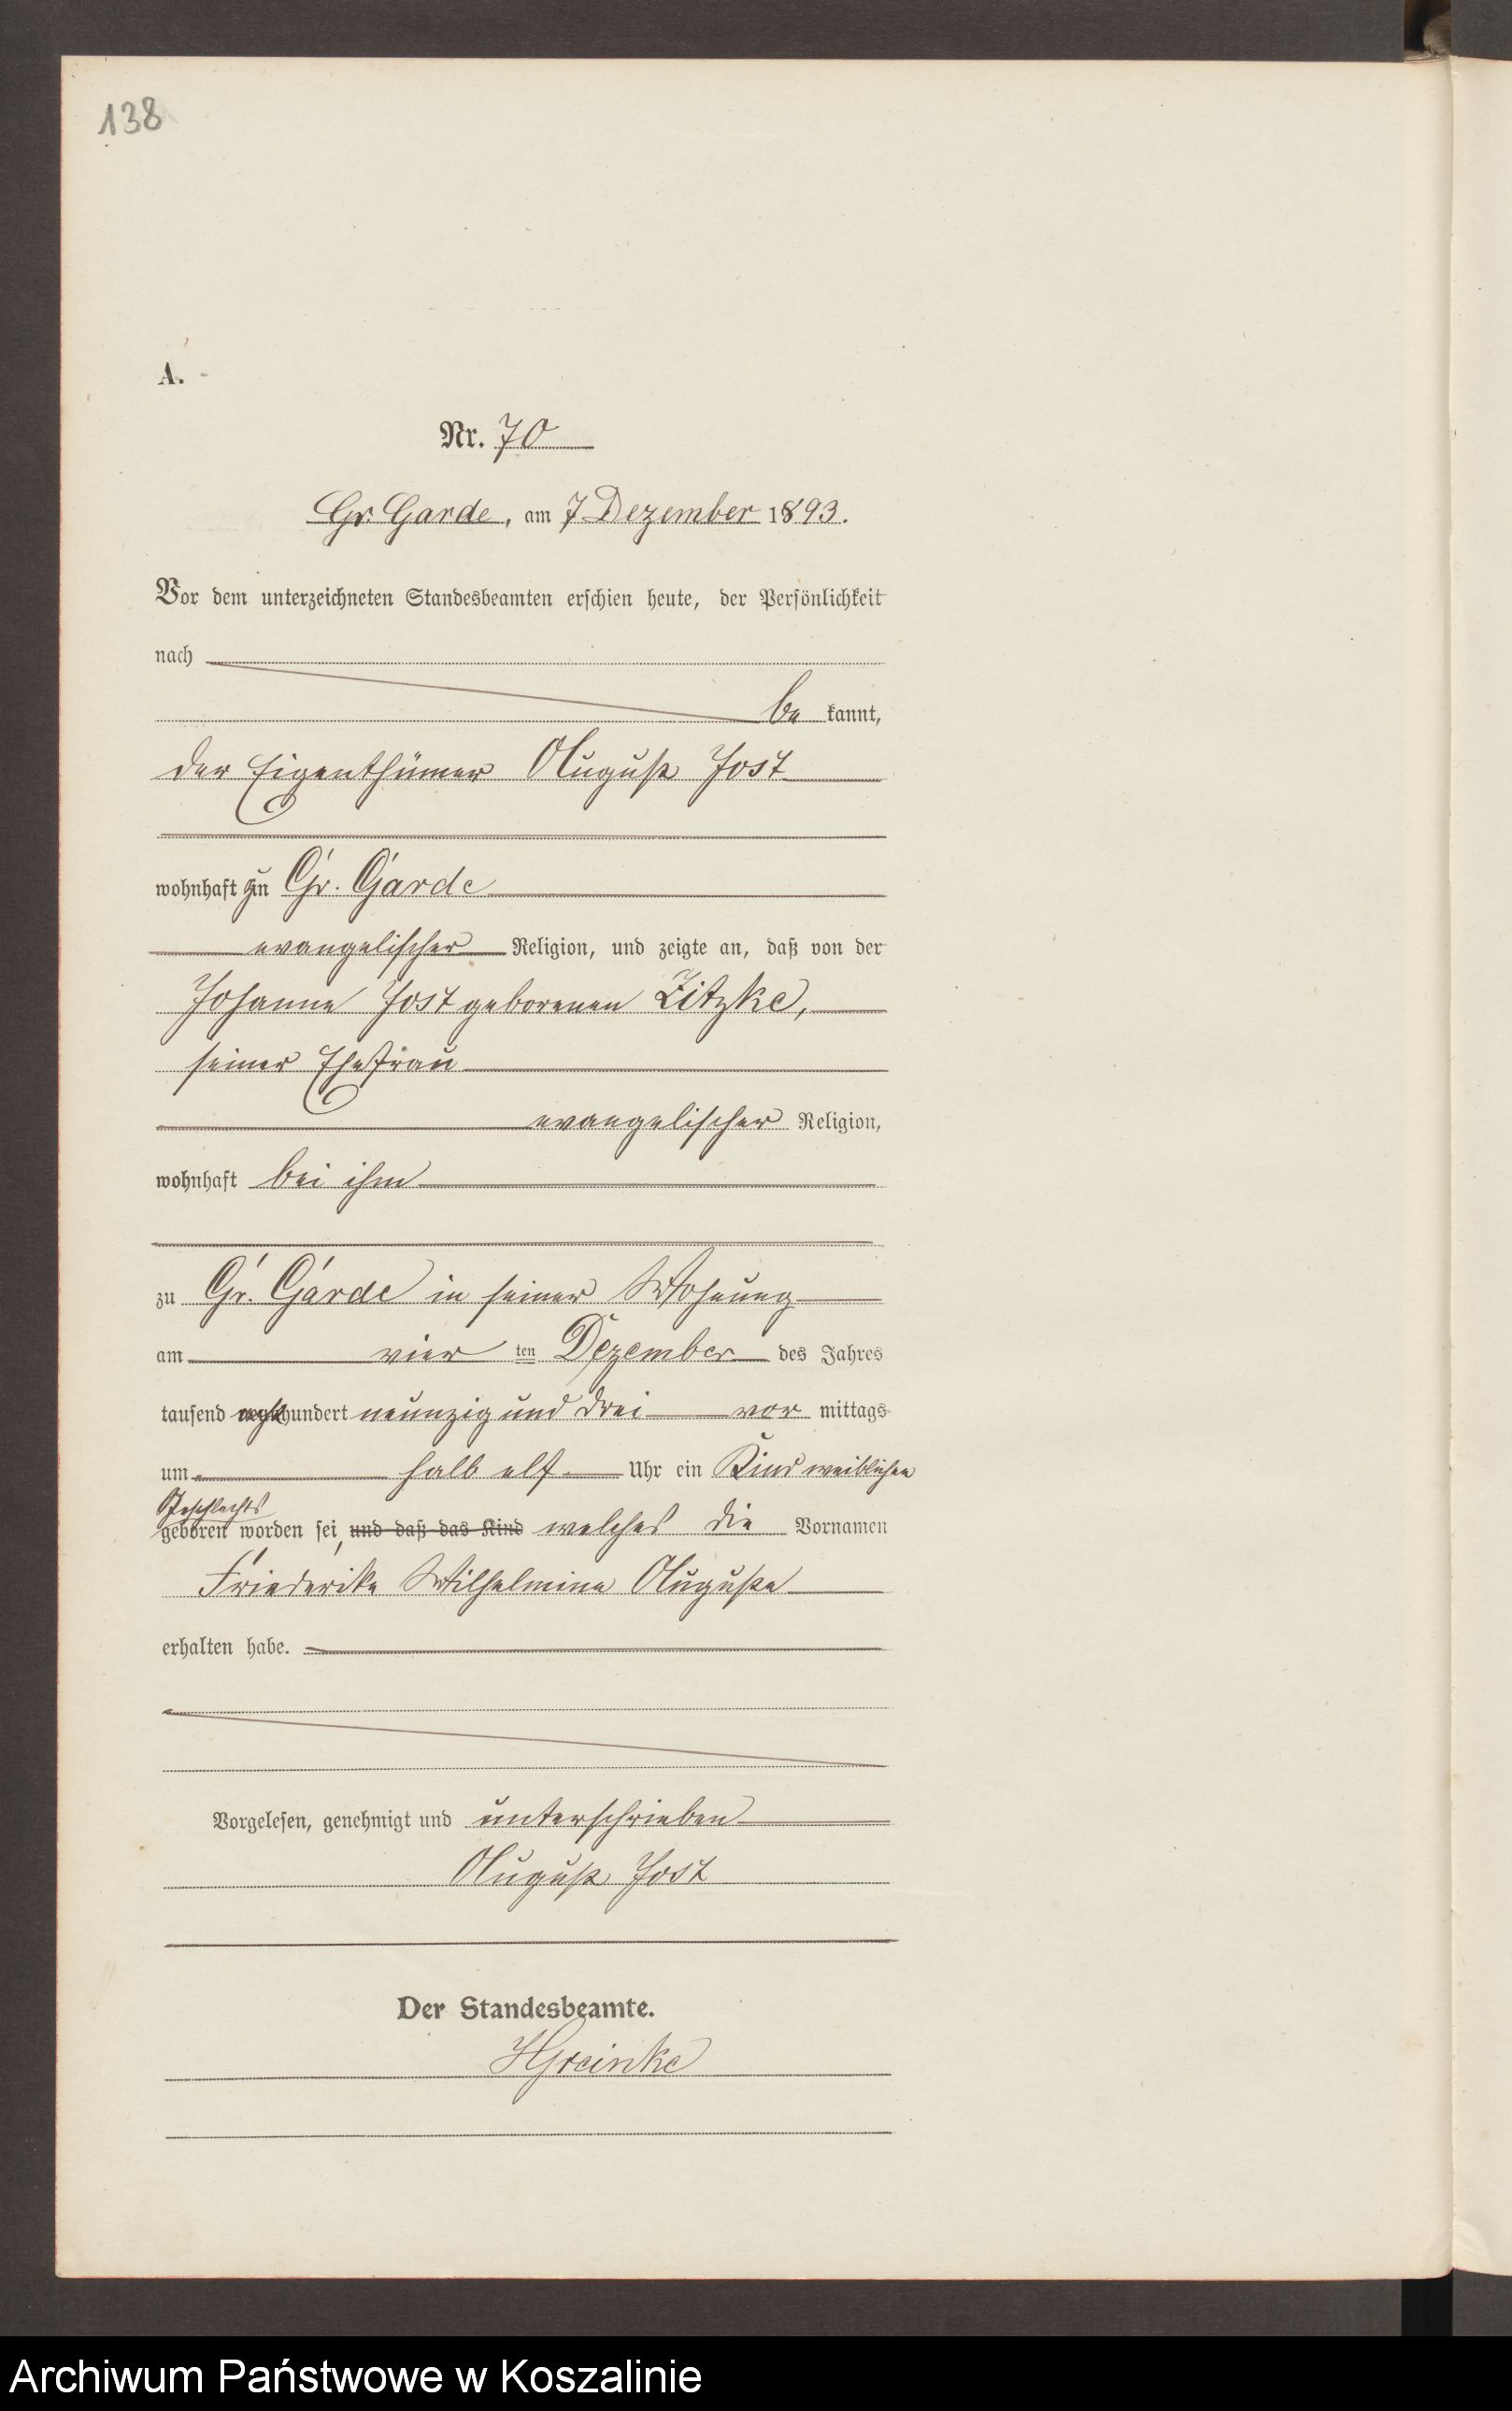 138
A.
Nr. 70
Gr. Garde, am 7 Dezember 1893.
Vor dem unterzeichneten Standesbeamten erschien heute, der Persönlichkeit
nach
be kannt,
der Eigenthümer August Jost
wohnhaft zu Gr. Garde
evangelischer Religion, und zeigte an, daß von der
Johanne Jost geborenen Zitzke,
seiner Ehefrau
evangelischer Religion,
wohnhaft bei ihm
zu Gr. Garde in seiner Wohnung
am vier ten Dezember des Jahres
tausend acht hundert neunzig und drei vor mittags
um halb elf Uhr ein Kind weiblichen
Geschlechts
geboren worden sei, und daß das Kind welches die Vornamen
Friederike Wilhelmine Auguste
erhalten habe.
Vorgelesen, genehmigt und unterschrieben
August Jost
Der Standesbeamte.
Archiwum Państwowe w Koszalinie